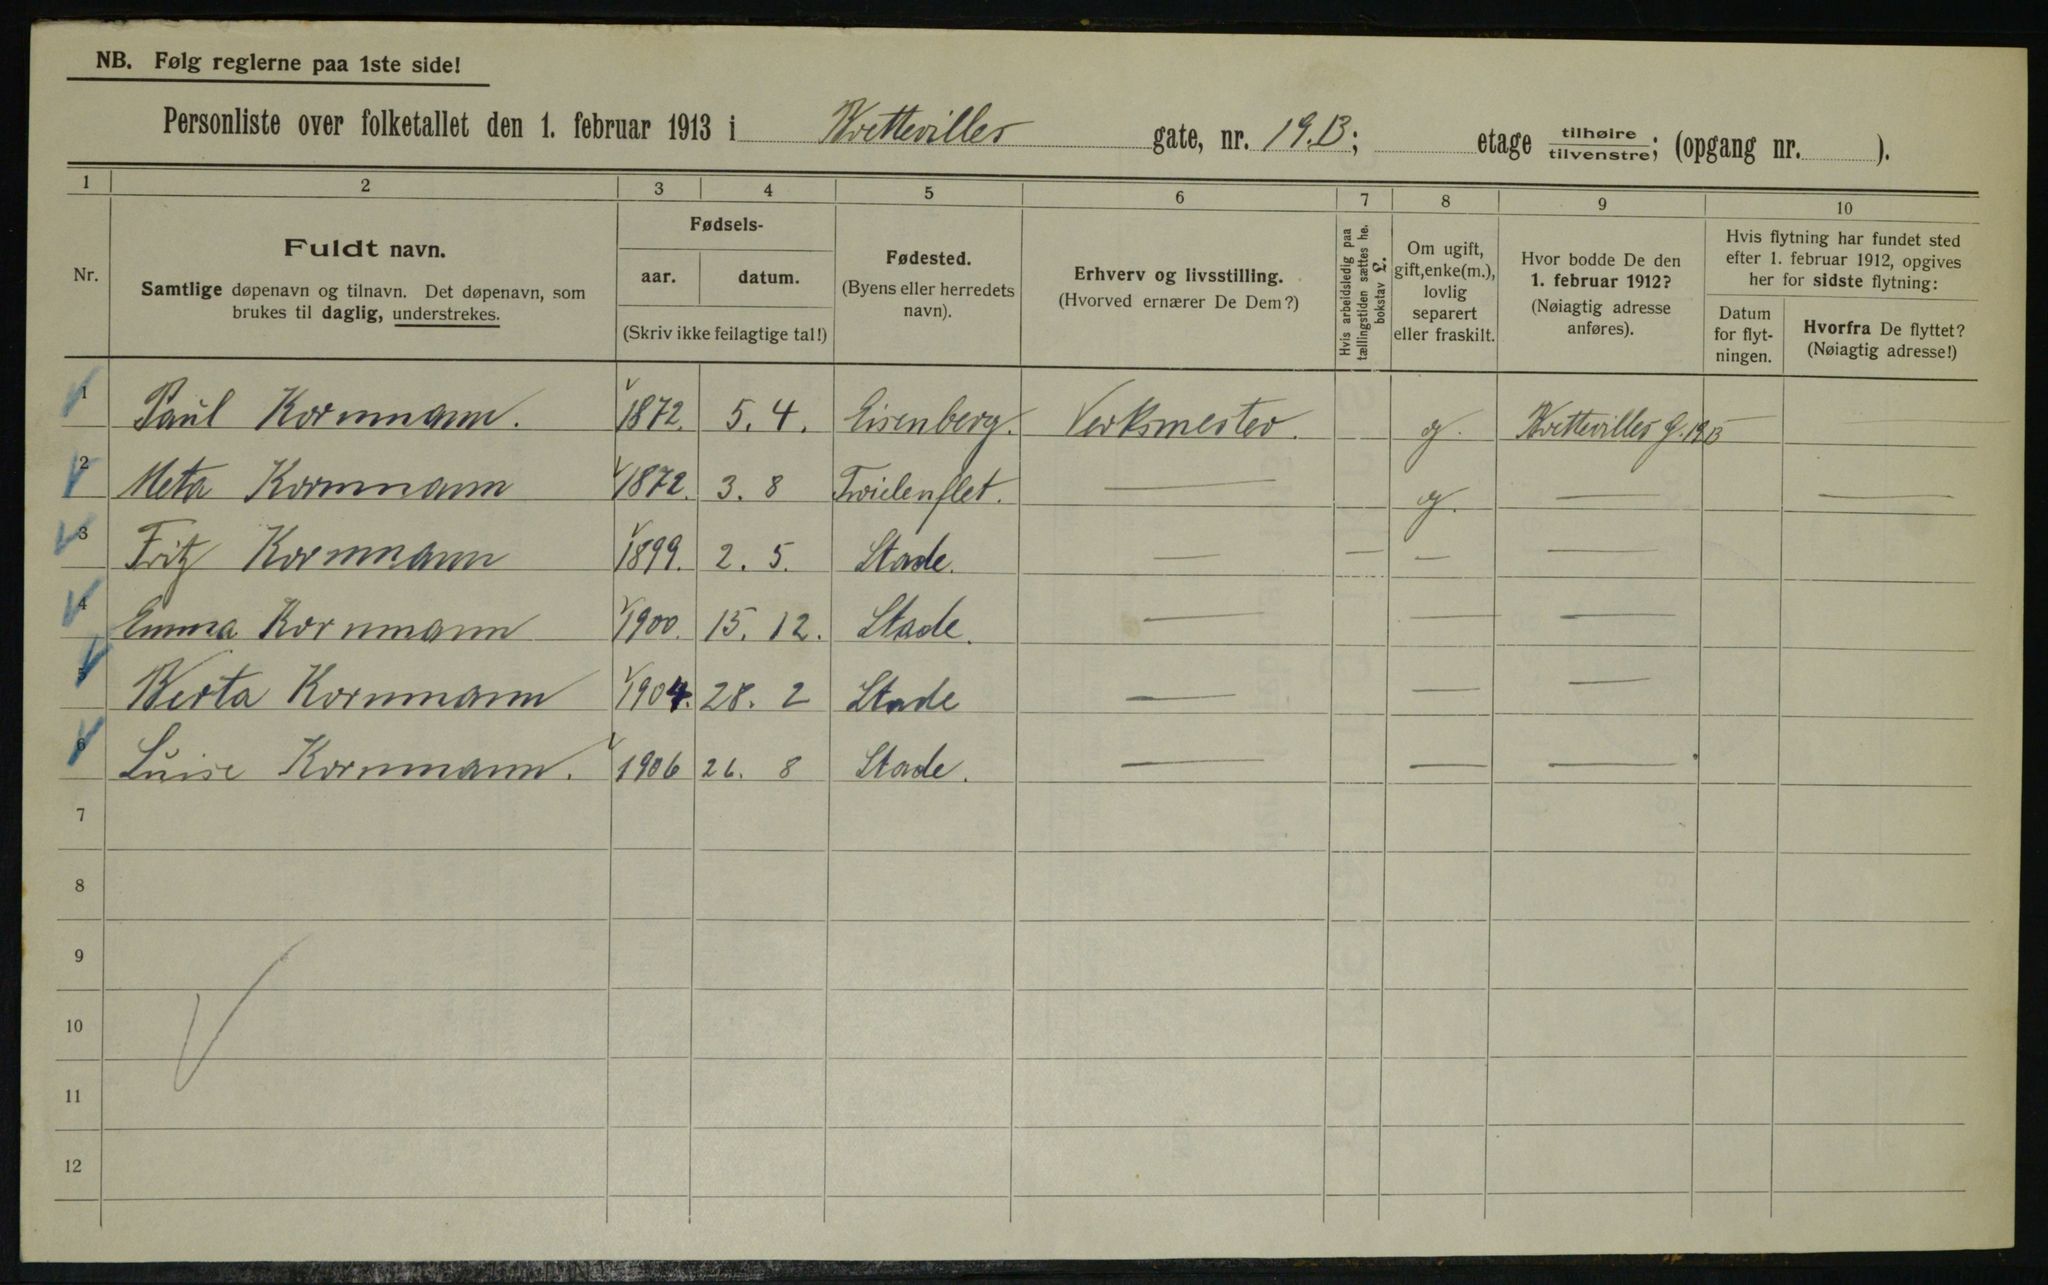 NB. Følg reglerne paa 1ste side!
Personliste over folketallet den 1. februar 1913 i Hvetteviller gate, nr. 19.B; etage tilhøire/tilvenstre; (opgang nr. ).
1 2 3 4 5 6 7 8 9 10
Nr.
Fuldt navn.
Samtlige døpenavn og tilnavn. Det døpenavn, som
brukes til daglig, understrekes.
Fødsels-
aar. datum.
(Skriv ikke feilagtige tal!)
Fødested.
(Byens eller herredets
navn).
Erhverv og livsstilling.
(Hvorved ernærer De Dem?)
Hvis arbeidsledig paa
tællingstiden sættes he.
bokstav £.
Om ugift,
gift, enke(m.),
lovlig
separert
eller fraskilt.
Hvor bodde De den
1. februar 1912?
(Nøiagtig adresse
anføres).
Hvis flytning har fundet sted
efter 1. februar 1912, opgives
her for sidste flytning:
Datum
for flyt-
ningen.
Hvorfra De flyttet?
(Nøiagtig adresse!)
1 Paul Kornmann. 1872. 5. 4. Eisenberg. Verksmester. g. Hvetteviller G. 19 B —
2 Meta Kornmann 1872. 3. 8 Twielenflet. — g. — —
3 Fritz Kornmann 1899. 2. 5. Stade. — — — —
4 Emma Kornmann 1900. 15. 12. Stade. — — —
5 Berta Kornmann 1904. 28. 2 Stade — — —
6 Luise Kornmann. 1906 26. 8 Stade. — — —
7
8
9
10
11
12